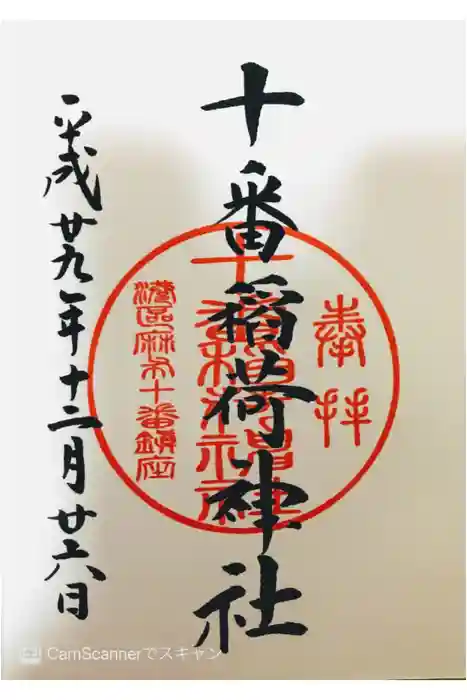 奉拝
十番稲荷神社
港區麻布十番鎮座
平成廿九年十二月廿六日
CamScannerでスキャン